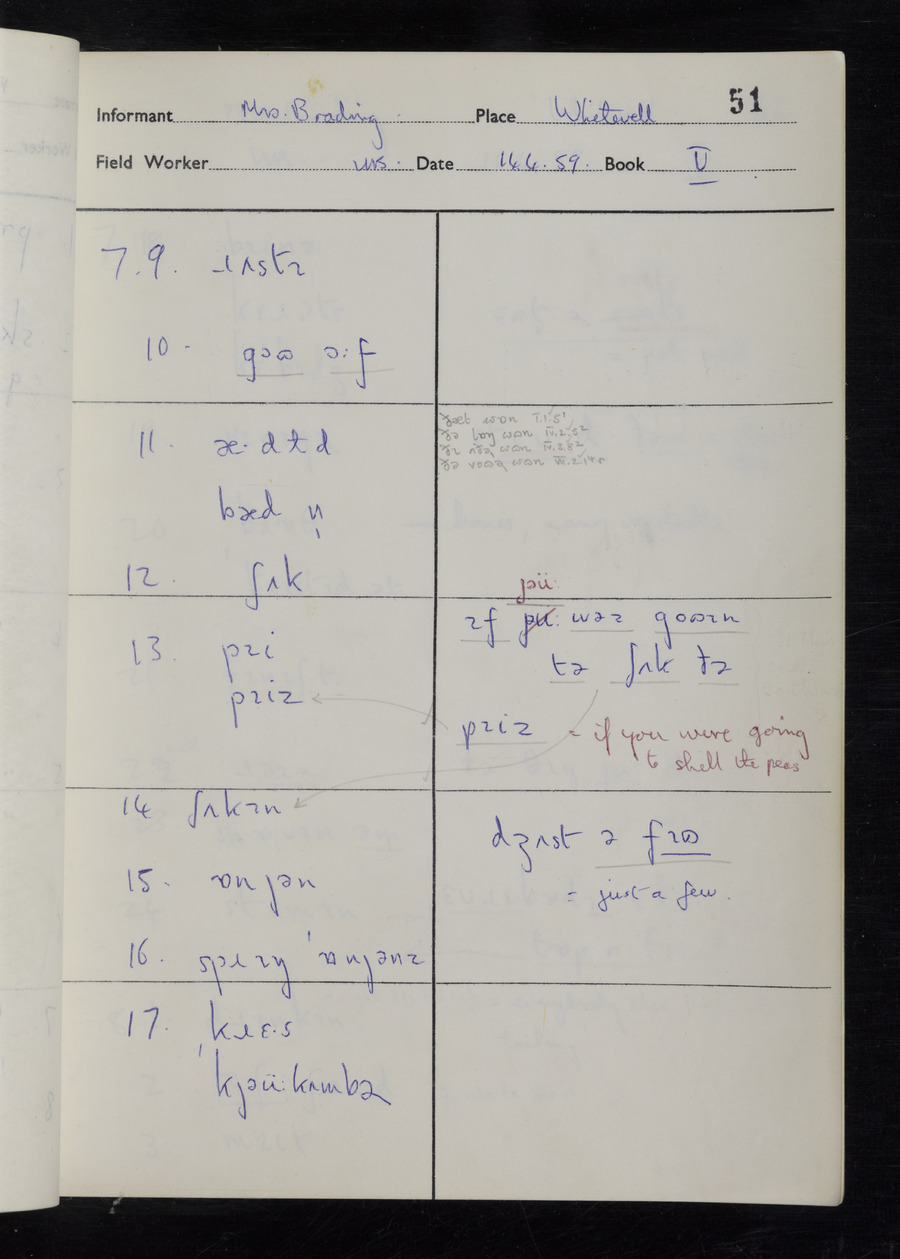 51
Informant Mrs. Brading Place Whitewell
Field Worker Date 14.4.59. Book V
7.9. ɹʌstɪ
10. gɔʊ ɔ:f
11. æ·dɫd
bæd n̩
12. ʃʌk
13. pɪi
pɪiz
14. ʃʌkɪn
15. ɒnjən
16. spɹɪŋ ˈɒnjənz
17. kɹɛ·s
ˈkjəü:kʌmbə
ðæt wɒn I.1.5
jəü:
ɪf wəɪ gɔʊɪn
tə ʃʌk ðə
pɪiz = if you were going
to shell the peas
dʒʌst ə fɪʊ
= just a few.